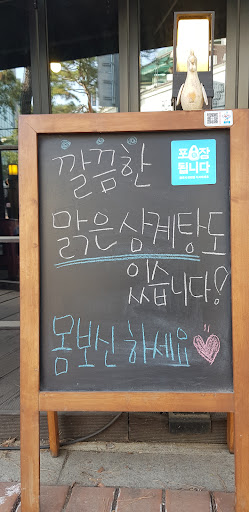 포장
됩니다
깔끔한
맑은 삼계탕도
있습니다!
몸보신 하세요